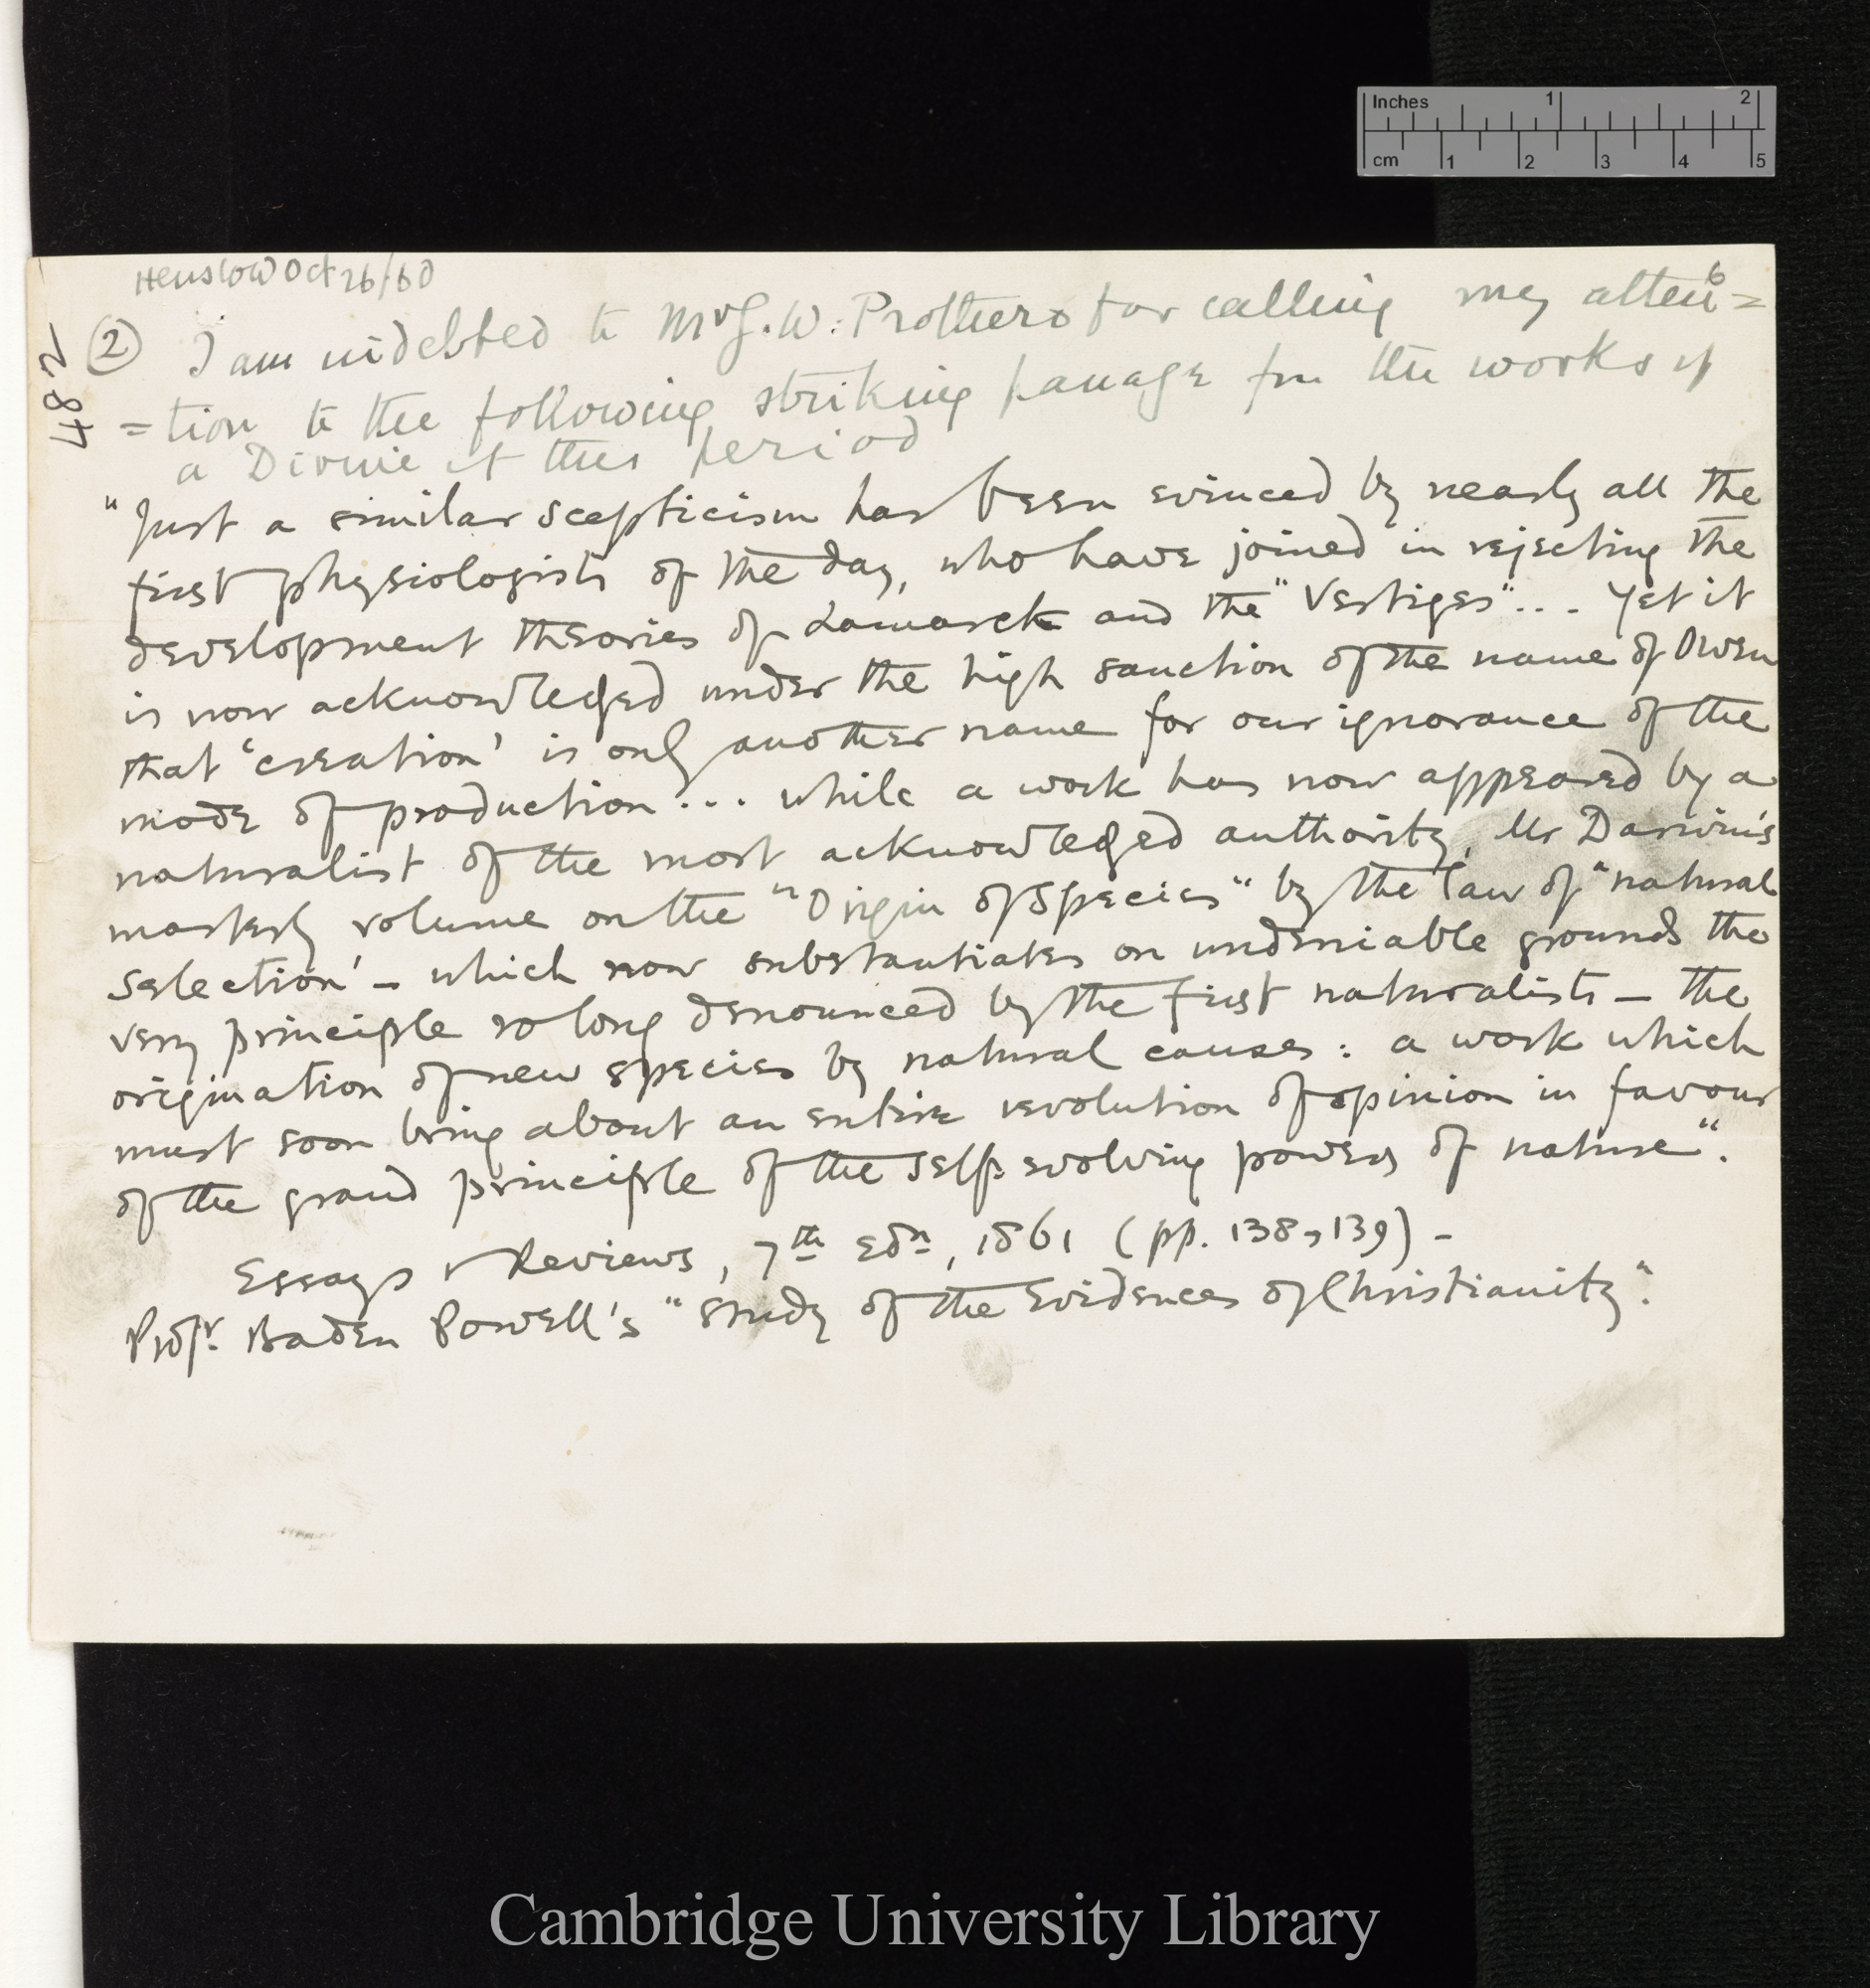 Inches 1 2
cm 1 2 3 4 5
Henslow Oct 26/60
6
482
(2) I am indebted to Mr G. W. Prothero for calling my atten=
=tion to the following striking passage from the works of
a Divine of this period
"Just a similar scepticism has been evinced by nearly all the
first physiologists of the day, who have joined in rejecting the
development theories of Lamarck and the "Vestiges"... Yet it
is now acknowledged under the high sanction of the name of Owen
that 'creation' is only another name for our ignorance of the
mode of production... while a work has now appeared by a
naturalist of the most acknowledged authority, Mr Darwin's
masterly volume on the "Origin of Species" by the law of "natural
selection' – which now substantiates on undeniable grounds the
very principle so long denounced by the first naturalists – the
origination of new species by natural causes: a work which
must soon bring about an entire revolution of opinion in favour
of the grand principle of the self-evolving powers of nature".
Essays & Reviews, 7th Edn, 1861 (pp. 138, 139) –
Profr. Baden Powell's "Study of the Evidences of Christianity".
Cambridge University Library